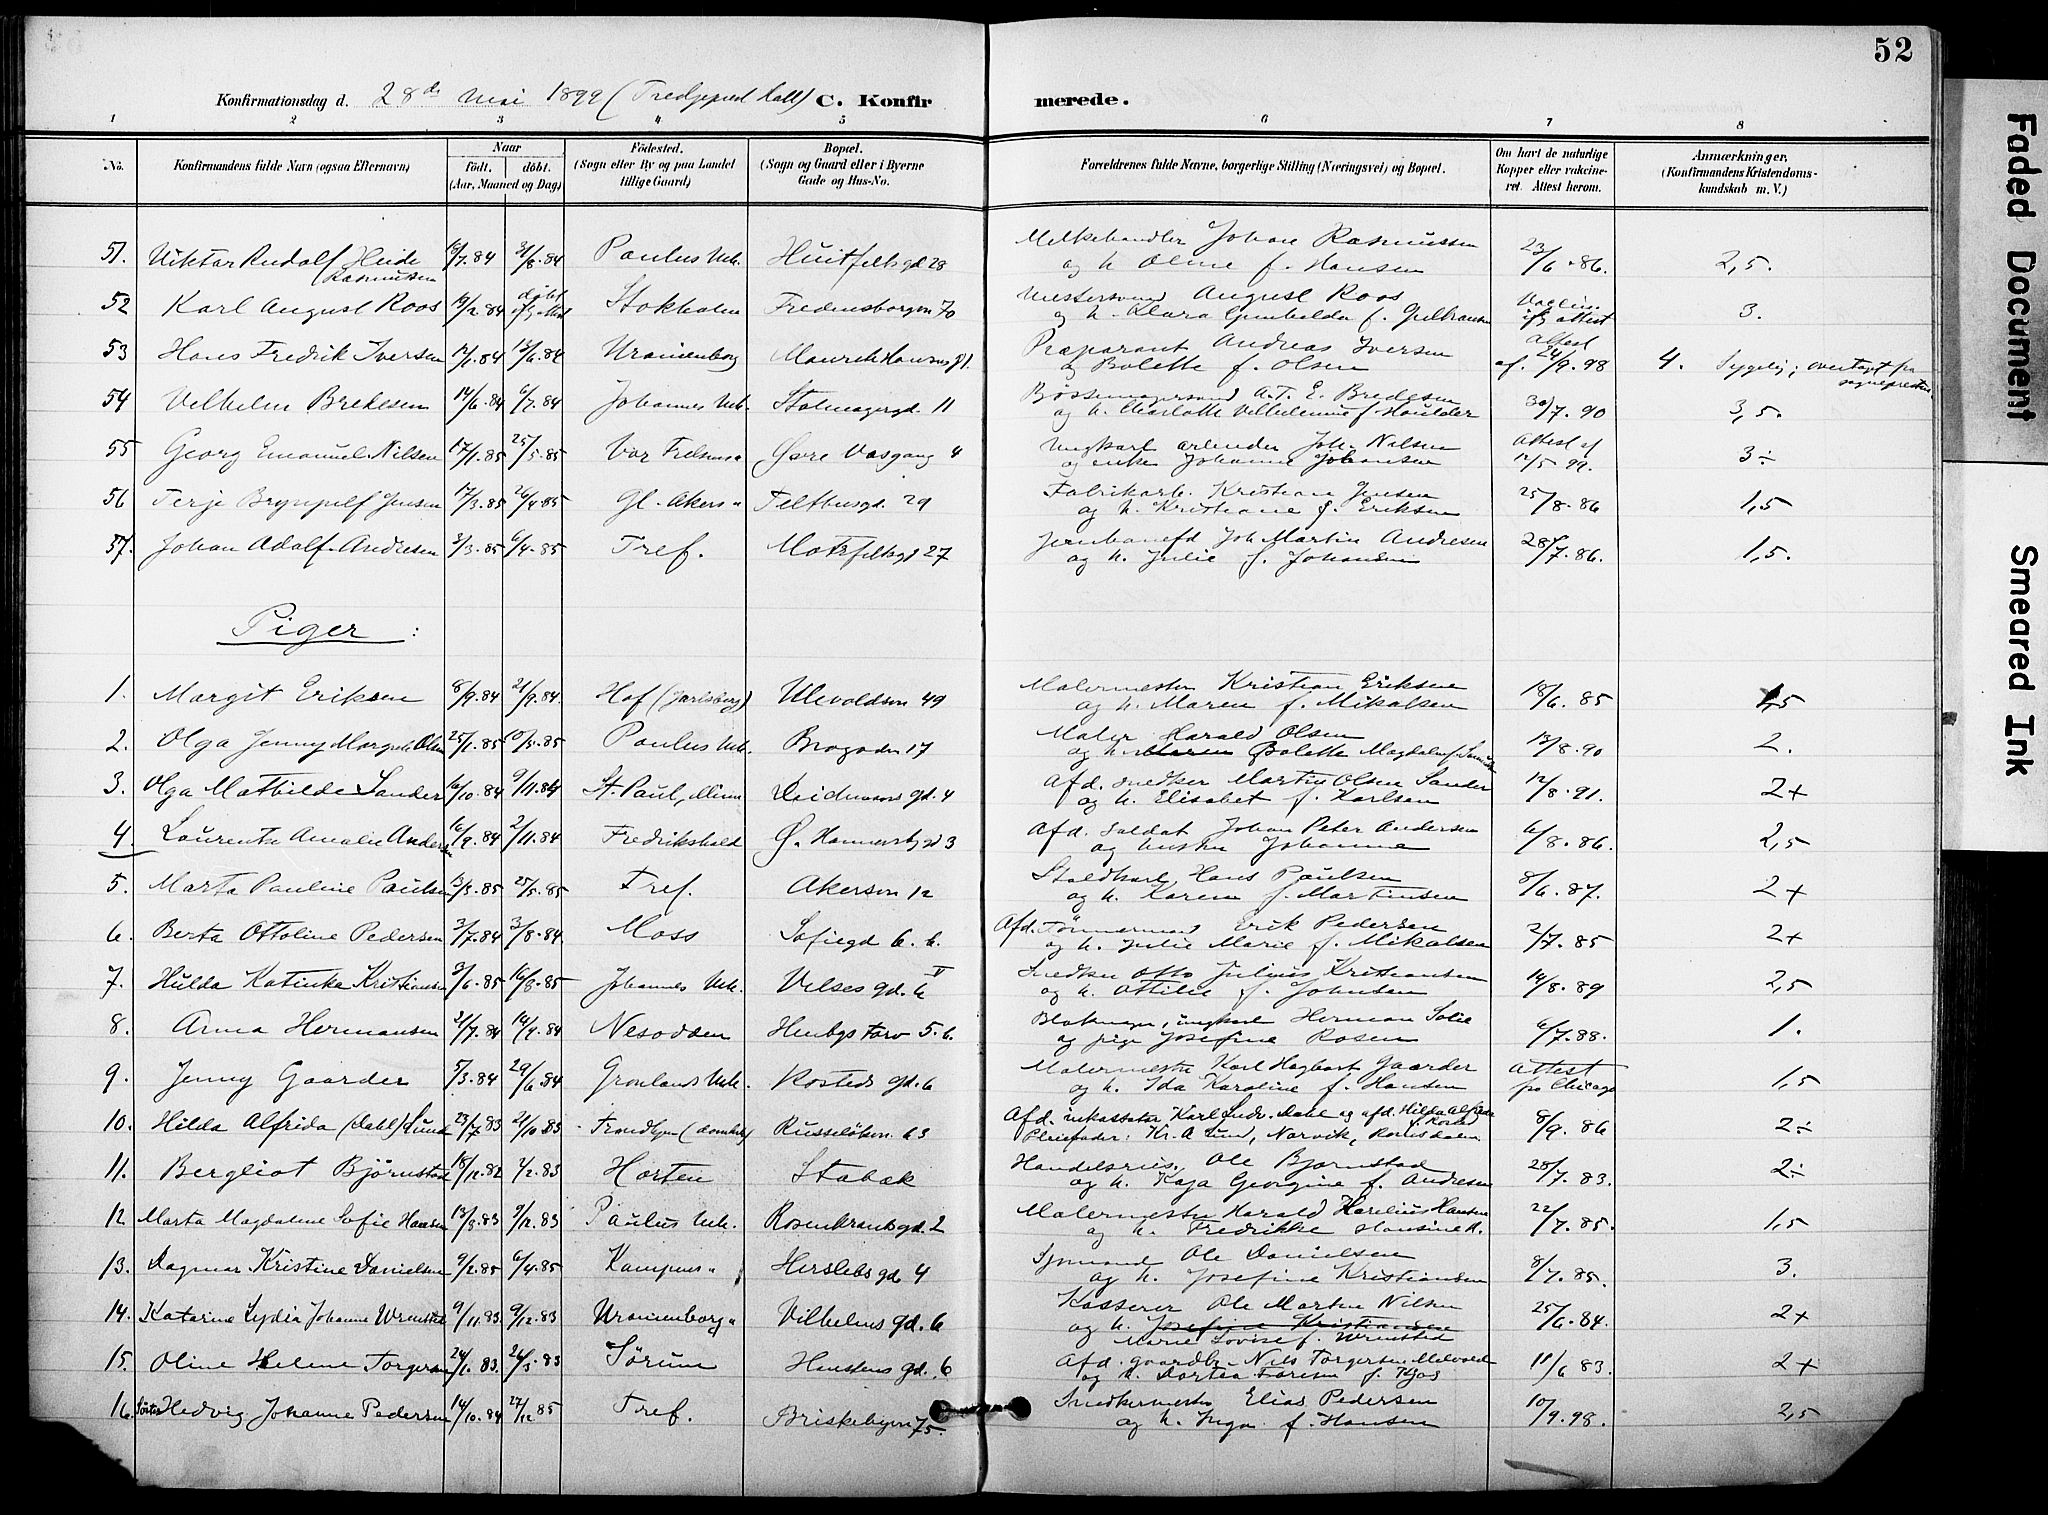 52
Konfirmationsdag d. 28de Mai 1899 (Tredjeprest Hall) C. Konfirmerede.
1 2 3 4 5 6 7 8
No. Konfirmandens fulde Navn (ogsaa Efternavn) Naar Födt. döbt. (Aar, Maaned og Dag) Födested. (Sogn eller By og paa Landet tillige Gaard) Bopæl. (Sogn og Gaard eller i Byerne Gade og Hus-No. Forældrenes fulde Navne, borgerlige Stilling (Næringsvei) og Bopæl. Om havt de naturlige Kopper eller vakcineret. Attest herom. Anmærkninger. (Konfirmandens Kristendomskundskab m. V.)
51. Viktor Rudolf Heide Rasmussen /7.84 31/8.84 Paulus Mk. Huitfeltsgd 28 Melkehandler Johan Rasmussen og h. Oline f. Hansen 23/6.86. 2,5.
52 Karl August Roos 19/2.84 døbt Stokholm Fredensborgvn 70 August Roos og h. Klara f. attest 3.
53 Hans Fredrik Iversen 84 84 Uranienborg Præparant Andreas Iversen og Bolette f. Olsen Attest af. 24/9.98 4. Sygelig; overtaget fra sogneprest
54 Vilhelm Bredesen 14/6.84 6/7.84 Johannes Mk. 11 Bøssemagersvend A.T.E. Bredesen og h. Charlotte Vilhelmine f. Houlder 30/7.90 3,5.
55 Georg Emanuel Nilsen 17/1.85 25/5.85 Vor Frelsers " Øvre Vosgang 4 Ungkarl arbeider Joh. Nilsen og enke Johanne Johansen Attest af 12/5 99. 3÷
56 Terje Brynjulf Jensen 17/3.85 26/4.85 Gl. Akers " Telthusgd. 29 Fabrikarb. Kristian Jensen og h. Kristiane f. Eriksen 25/8.86 1,5
57. Johan Adolf Andresen 3/3.85 6/4.85 Tref. Motzfeltsgd 27 Joh. Martin Andresen og h. Julie f. Johansen 28/7.86. 1,5.
Piger :
1. Margit Eriksen 8/9.84 21/9.84. Hof (Jarlsberg) Ulevoldsvn 49 Malermester Kristian Eriksen og h. Maren f. Mikalsen 18/6.85 1,5
2. Olga Jenny Margrete Olsen 25/1.85 10/5.85 Paulus Mk. Brogaden 17 Maler Harald Olsen og h. Maren Bolette Magdalene f. 13/8.90 2.
3. Olga Mathilde Sander 16/10.84 9/11.84 St. Paul, Minn gd. 4 Afd. snedker Martin Olsen Sander og h. Elisabet f. Karlsen 12/8.91. 2+
4. Laurentze Amalie Andersen 16/9.84 2/11.84 Fredrikshald Ø. Hammersbgd 3 Afd. Soldat Johan Peter Andersen og hustru Johanne 6/8.86. 2,5
5. Marta Pauline Paulsen 13/3.85 25/5.85 Tref. Akersvn 12 Staldkarl Hans Paulsen og h. Karen f. Martinsen 8/6.87. 2+
6. Berta Ottoline Pedersen 3/7.84 3/8.84. Moss Sofiegd 6. b. Afd. Tømmermand Erik Pedersen og h. Julie Marie f. Mikalsen 2/7.85 2+
7. Hulda Katinka Kristiansen 3/6.85 16/8.85 Johannes Mk. Vibes gd. 6 V Snedker Otto Julius Kristiansen og h. Ottilie f. Johnsen 14/8.89 2,5
8. Anna Hermansen 31/7.84 14/9.84 Nesodden Henbgs Torv 5. b. Blokmager, ungkarl Herman Solie og pige Josefine Rosen 6/7.88. 1.
9. Jenny Gaarder 5/3.84 29/6.84 Grønlands Mk. Rosteds gd. 6 Malermester Karl Hagbart Gaarder og h. Ida Karoline f. Hansen Attest fra Chicago 1,5
10. Hilda Alfrida (Dahl) Lund 23/7.83 21/10.83 Trondhjem (domk.) Russeløkvn. 63 Afd. inkassator Karl Ludv. Dahl og afd. Hilda Alfrida Pleiefader: Kr. A Lund, Narvik, 8/9.86 2÷
11. Bergliot Bjørnstad 18/12.82 /2.83 Horten Stabæk Handelsreis. Ole Bjørnstad og h. Kaja Georgine f. Andresen 28/7.83. 2÷
12. Marta Magdalene Sofie Hansen 13/8.83 9/12.83 Paulus Mk. Rosenkrantsgd. 2 Malermester Harald Hansen og h. Fredrikke Hansine H. 22/7.85. 1,5
13. Dagmar Kristine Danielsen 9/2.85 6/4.85 Kampens " Herslebs gd 4 Sjømand Ole Danielsen og h. Josefine Kristiansen 8/7.85. 3.
14. Katarine Lydia Johanne Wrensted 9/11.83. 9/12.83 Uranienborg " Vilhelms gd. 6 Kasserer Ole Martin Nilsen og h. Josefine Kristiansen Marie Lovise f. Wrensted 25/6.84. 2+
15. Oline Helene Torgersen 24/1.83. 26/3.83 Sørum Hanstens gd. 6 Afd. gaardbr. Nils Torgersen Melvold og h. Dortea f. Kjos 11/6 83. 2+
16. Hedvig Johanne Pedersen 14/10.84 27/12.85 Tref. Briskebyvn 75. Snedkermester Elias Pedersen og h. Inga f. Hansen 10/9.98. 2,5
Faded Document
Smeared Ink